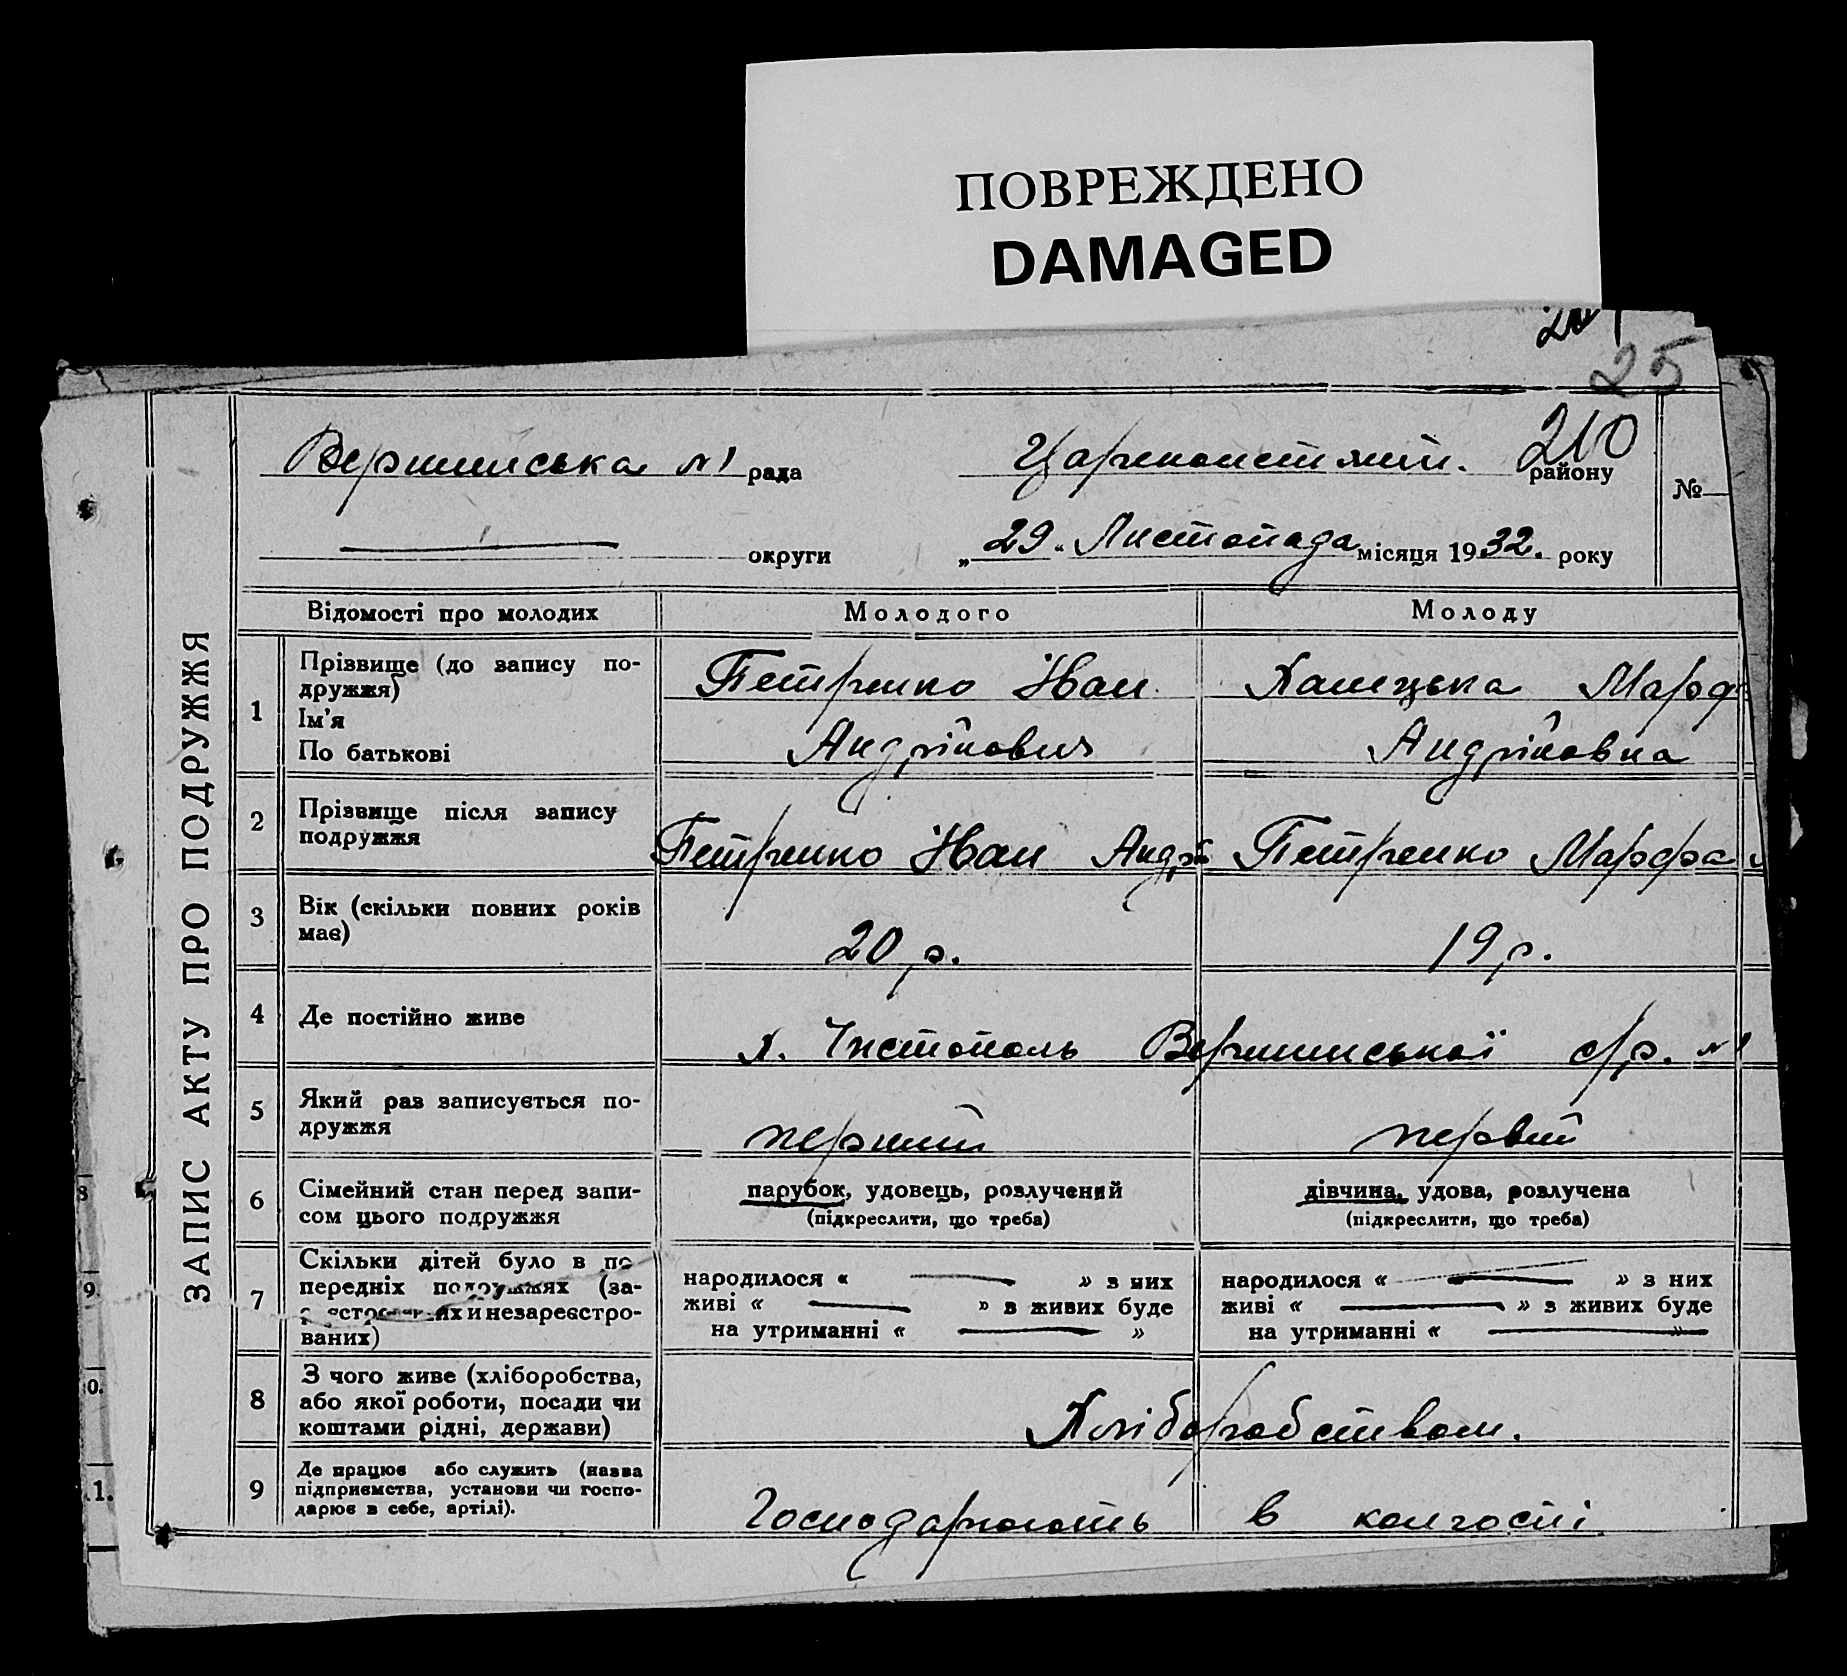 ПОВРЕЖДЕНО
DAMAGED
25
210
Вершинська №1 рада
района
району
№
округи
„29“ Листопада місяця 1932. року
ЗАПИС АКТУ ПРО ПОДРУЖЖЯ
Відомості про молодих Молодого Молоду
1 Прізвище (до запису по-
дружжя)
Ім'я
По батькові
Петренко Іван
Андрійович
Ханецька Марф
Андріївна
2 Прізвище після запису
подружжя
Петренко Іван Андр Петренко Марфа
3 Вік (скільки повних років
має)
20 р. 19 р.
4 Де постійно живе
х. Чистополь Вершинської с/р. №1
5 Який раз записується по-
дружжя
перший первий
6 Сімейний стан перед запи-
сом цього подружжя
парубок, удовець, розлучений
(підкреслити, що треба)
дівчина, удова, розлучена
(підкреслити, що треба)
7 Скільки дітей було в по
передніх подружжях (за-
их и незареєстро-
ваних)
народилося « » з них
живі « » з живих буде
на утриманні « »
народилося « » з них
живі « » з живих буде
на утриманні « »
8 З чого живе (хліборобства,
або якої роботи, посади чи
коштами рідні, держави)
Хліборобством.
9 Де працює або служить (назва
підприємства, установи чи госпо-
дарює в себе, артілі).
Господарюють в колгоспі
8
9.
0.
1.